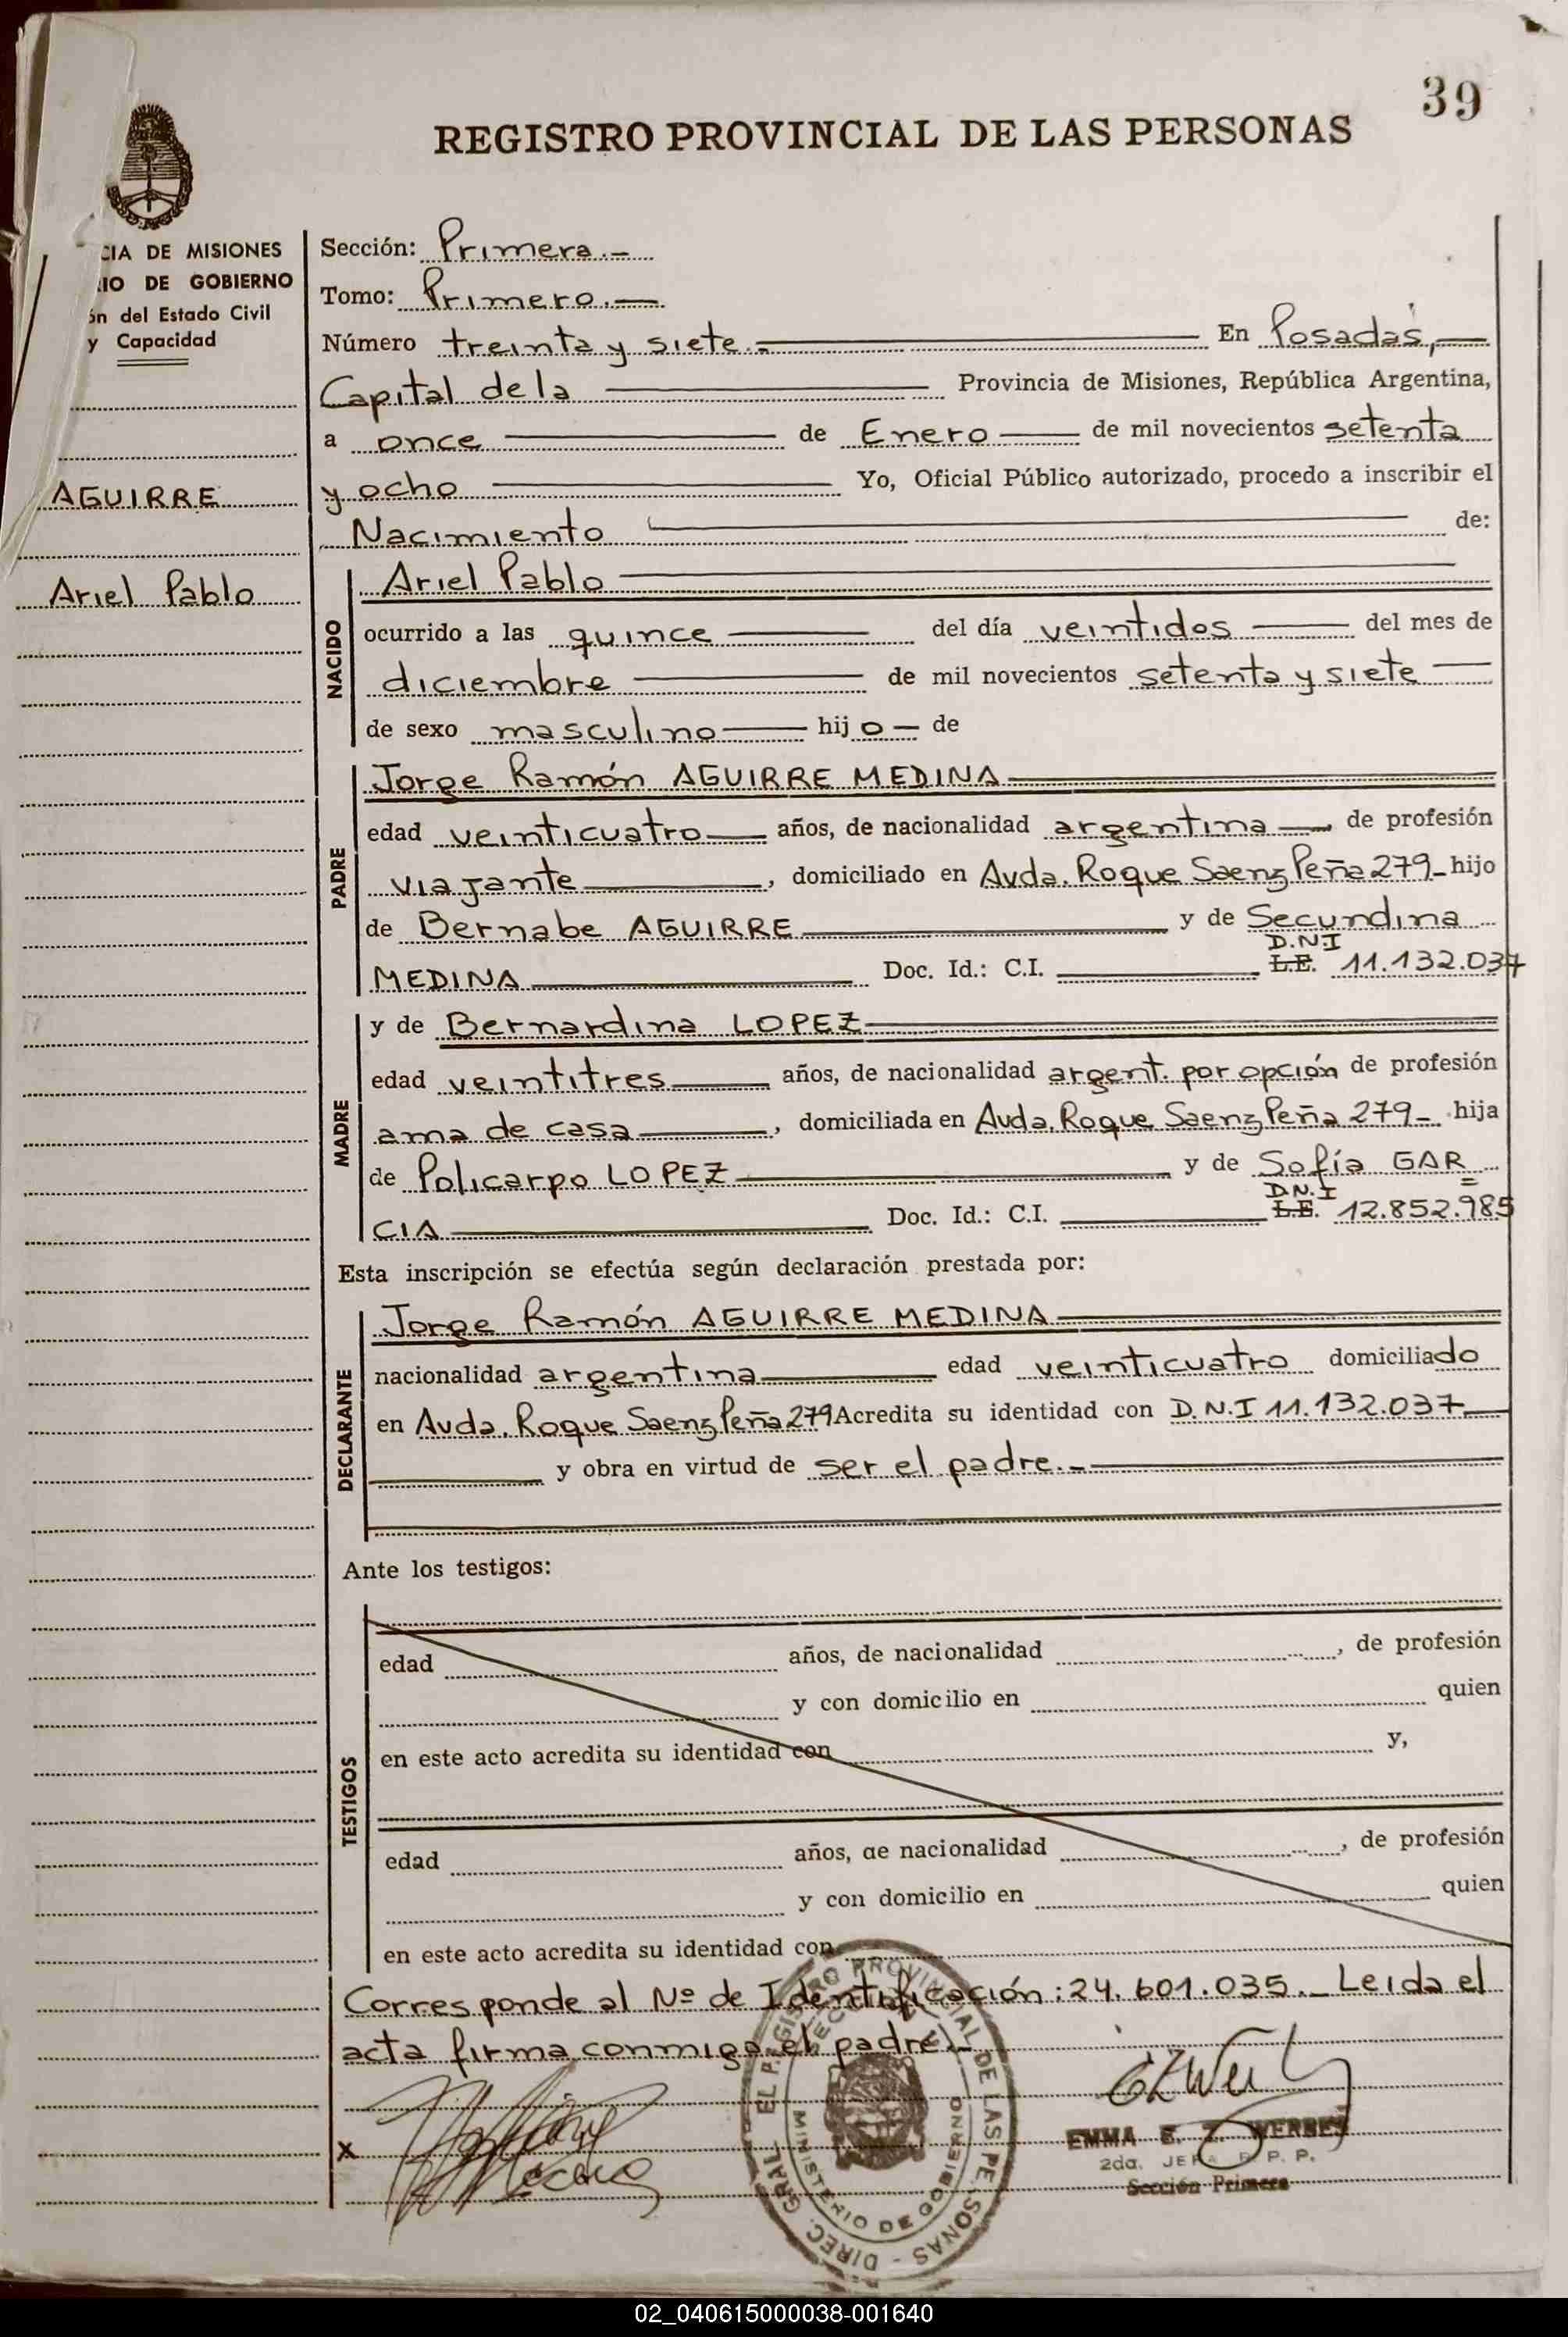 39
REGISTRO PROVINCIAL DE LAS PERSONAS
CIA DE MISIONES
IO DE GOBIERNO
ón del Estado Civil
y Capacidad
AGUIRRE
Ariel Pablo
Sección: Primera.-
Tomo: Primero.-
Número treinta y siete.- En Posadas,
Capital de la Provincia de Misiones, República Argentina,
a once de Enero de mil novecientos setenta
y ocho Yo, Oficial Público autorizado, procedo a inscribir el
Nacimiento de:
NACIDO
Ariel Pablo
ocurrido a las quince del día veintidos del mes de
diciembre de mil novecientos setenta y siete
de sexo masculino hijo de
PADRE
Jorge Ramón AGUIRRE MEDINA
edad veinticuatro años, de nacionalidad argentina de profesión
viajante, domiciliado en Avda. Roque Saenz Peña 279- hijo
de Bernabe AGUIRRE y de Secundina
D.N.I
MEDINA Doc. Id.: C.I. L.E. 11.132.037
MADRE
y de Bernardina LOPEZ
edad veintitres años, de nacionalidad argent. por opción de profesión
ama de casa, domiciliada en Avda. Roque Saenz Peña 279- hija
de Policarpo LOPEZ y de Sofía GAR
D.N.I
CIA Doc. Id.: C.I. L.E. 12.852.985
Esta inscripción se efectúa según declaración prestada por:
DECLARANTE
Jorge Ramón AGUIRRE MEDINA
nacionalidad argentina edad veinticuatro domiciliado
en Avda. Roque Saenz Peña 279 Acredita su identidad con D.N.I 11.132.037
y obra en virtud de ser el padre.-
Ante los testigos:
TESTIGOS
edad años, de nacionalidad , de profesión
y con domicilio en quien
en este acto acredita su identidad con y,
edad años, de nacionalidad , de profesión
y con domicilio en quien
en este acto acredita su identidad con
Corresponde al Nº de Identificación: 24.601.035.- Leida el
acta firma conmigo el padre.-
x
DIREC. GRAL. EL REGISTRO PROVINCIAL DE LAS PERSONAS
MINISTERIO DE GOBIERNO
EMMA E. Z. WERBES
2da. JEFA R. P. P.
Sección Primera
02_040615000038-001640